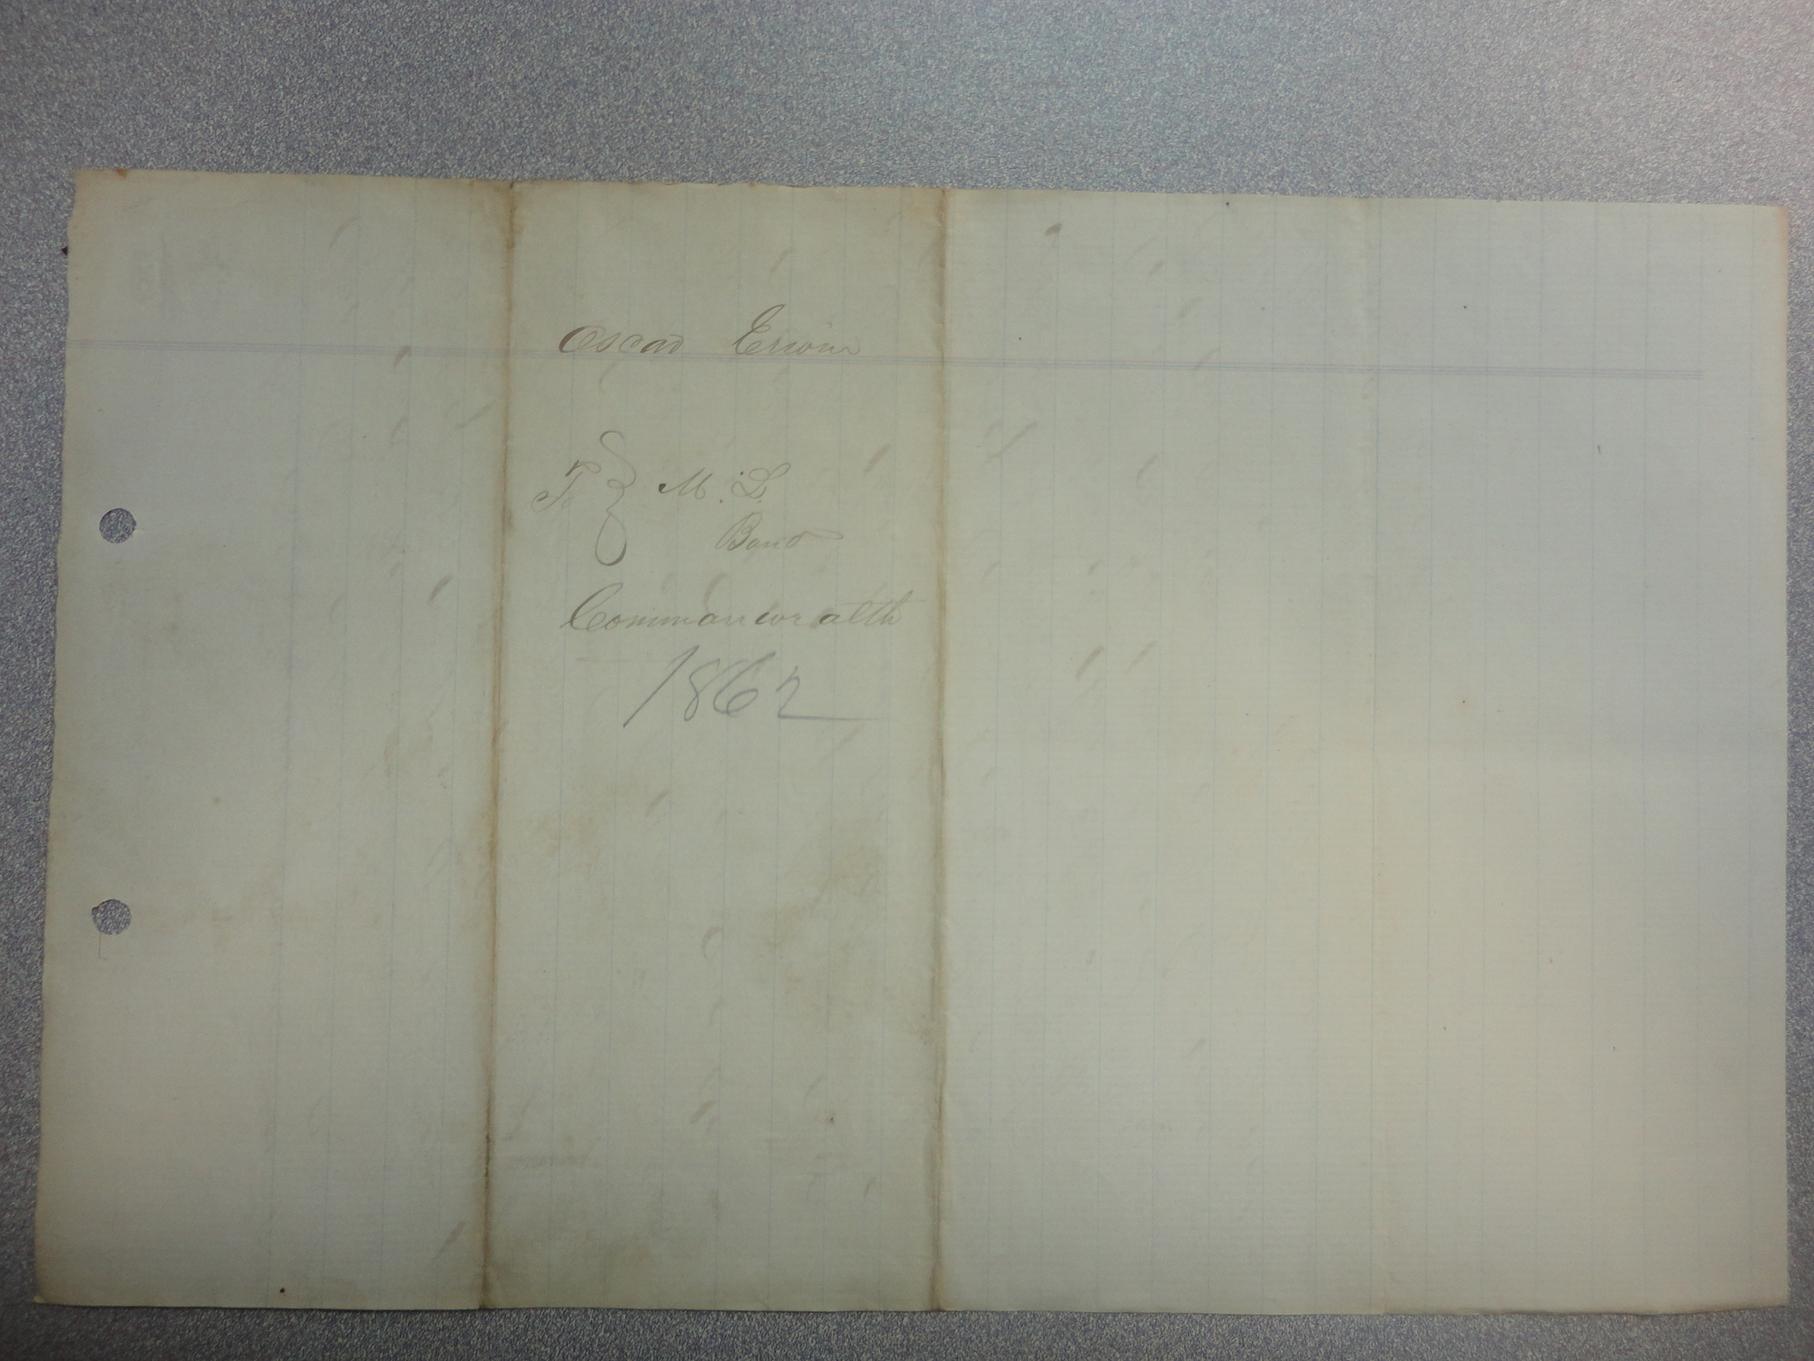 Oscar Erwin
To } M. L.
Bond
Commonwealth
1862